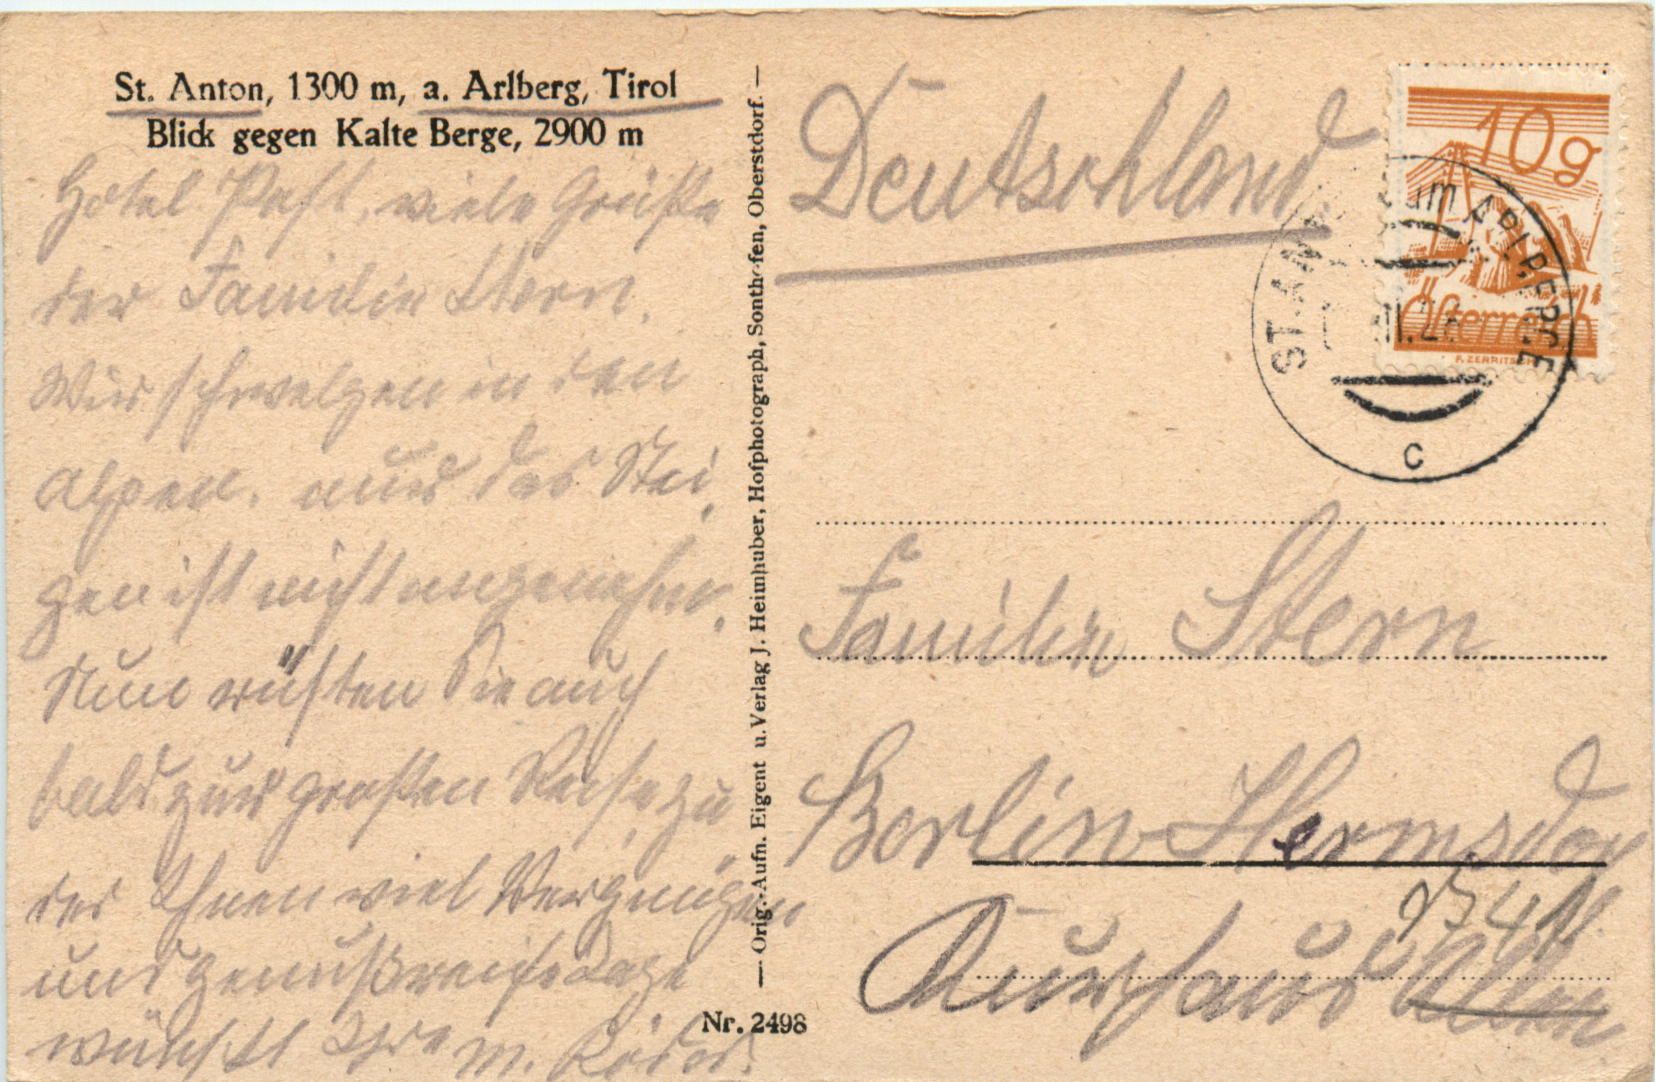 St. Anton, 1300 m, a. Arlberg, Tirol
Blick gegen Kalte Berge, 2900 m
Hotel Post, viele Grüße
der Familie Stern.
Wir schwelgen in den
Alpen. nur das Stei
gen ist nicht angenehm.
Nun rüsten Sie auch
bald zur großen Reise, zu
der Ihnen viel Vergnügen
und genußreiche Tage
wünscht Ihre M.
— Orig.-Aufn. Eigent u. Verlag J. Heimhuber, Hofphotograph, Sonthofen, Oberstdorf. —
Nr. 2498
Deutschland
10g
Österreich
ST. ANTON am ARLBERG
c
Familie Stern
Berlin-Hermsdor
Kurhaus